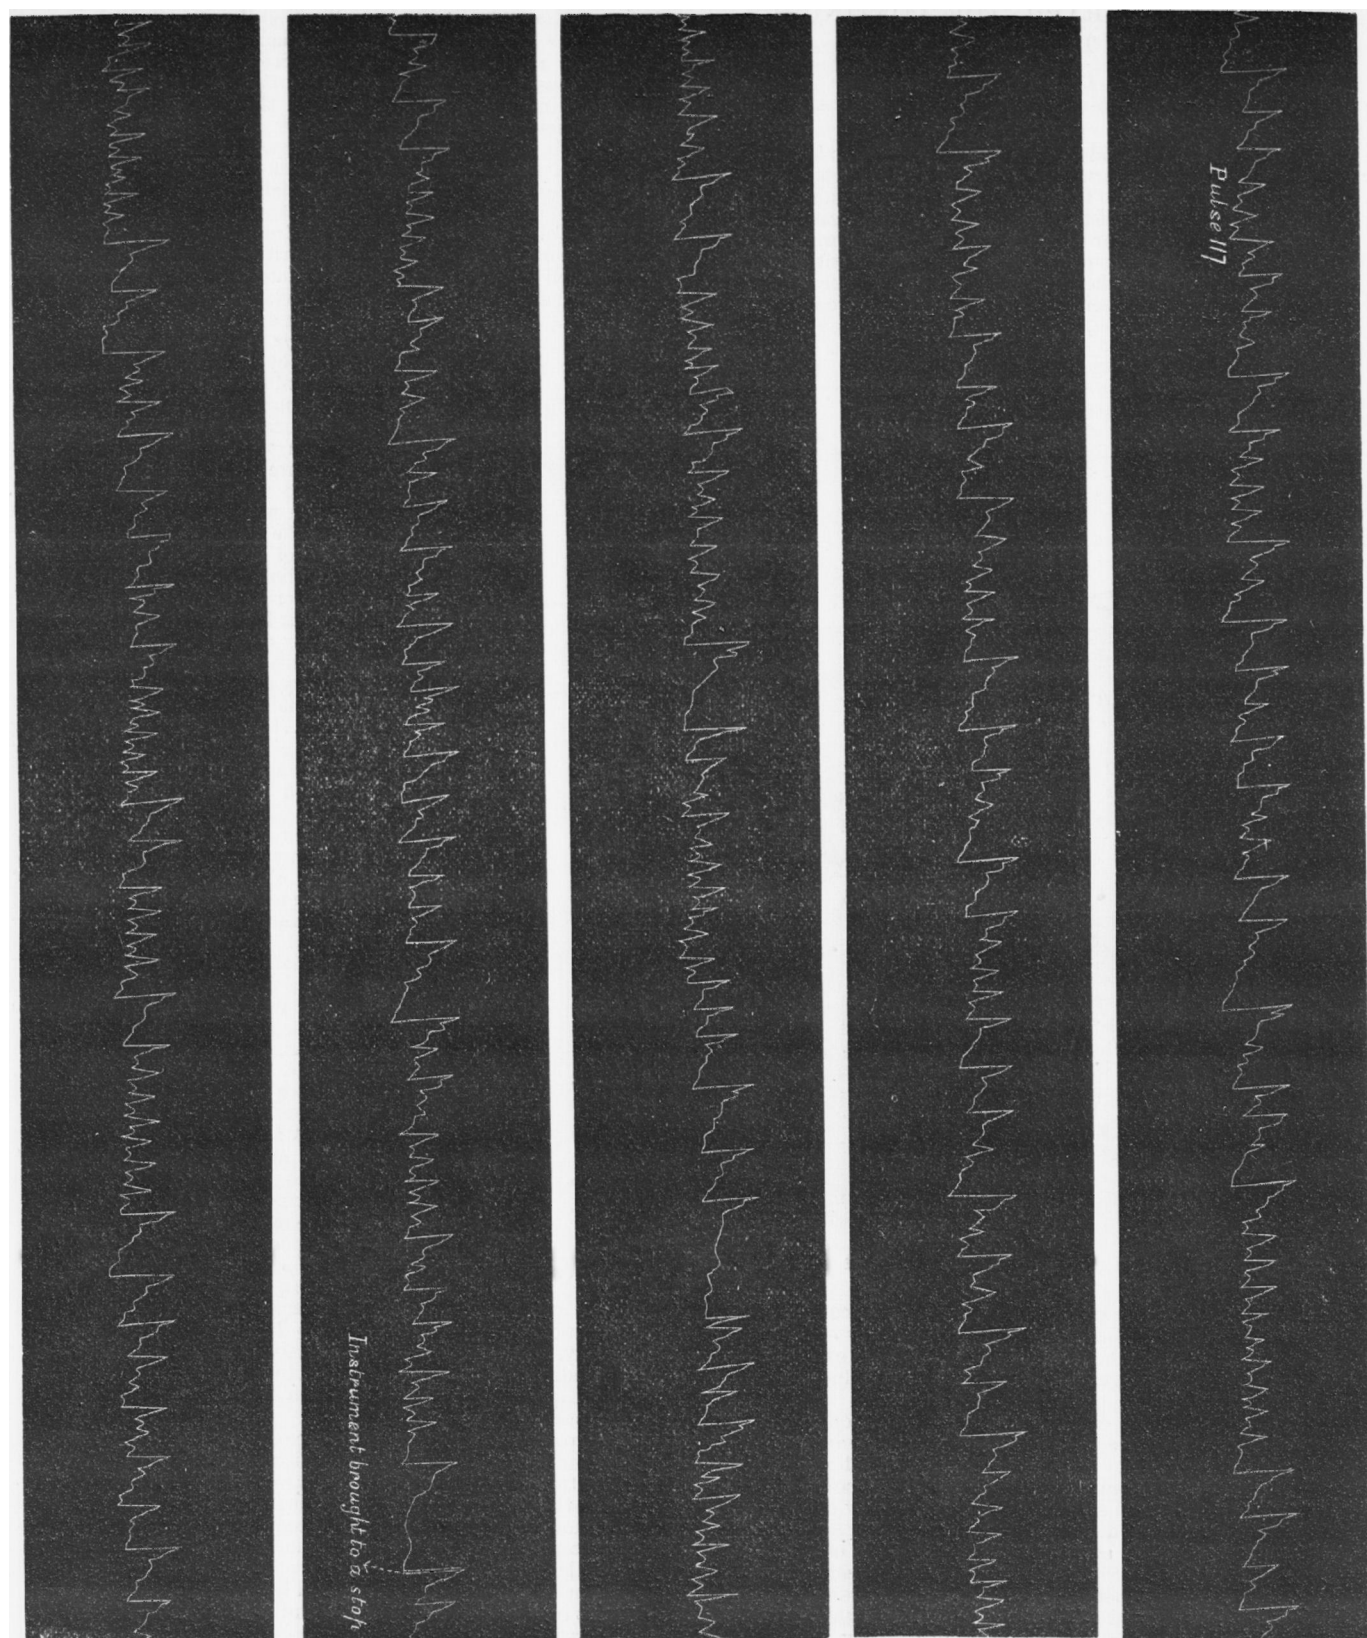 Pulse 117
Instrument brought to a stop